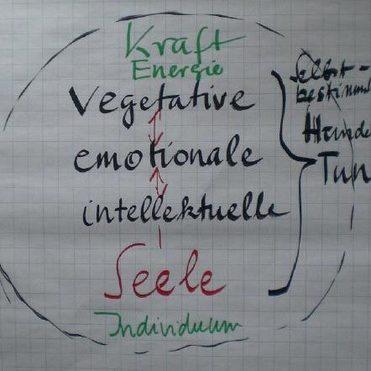 Kraft
Energie
Vegetative
emotionale
intellektuelle
Seele
Individuum
Selbst-
Tun